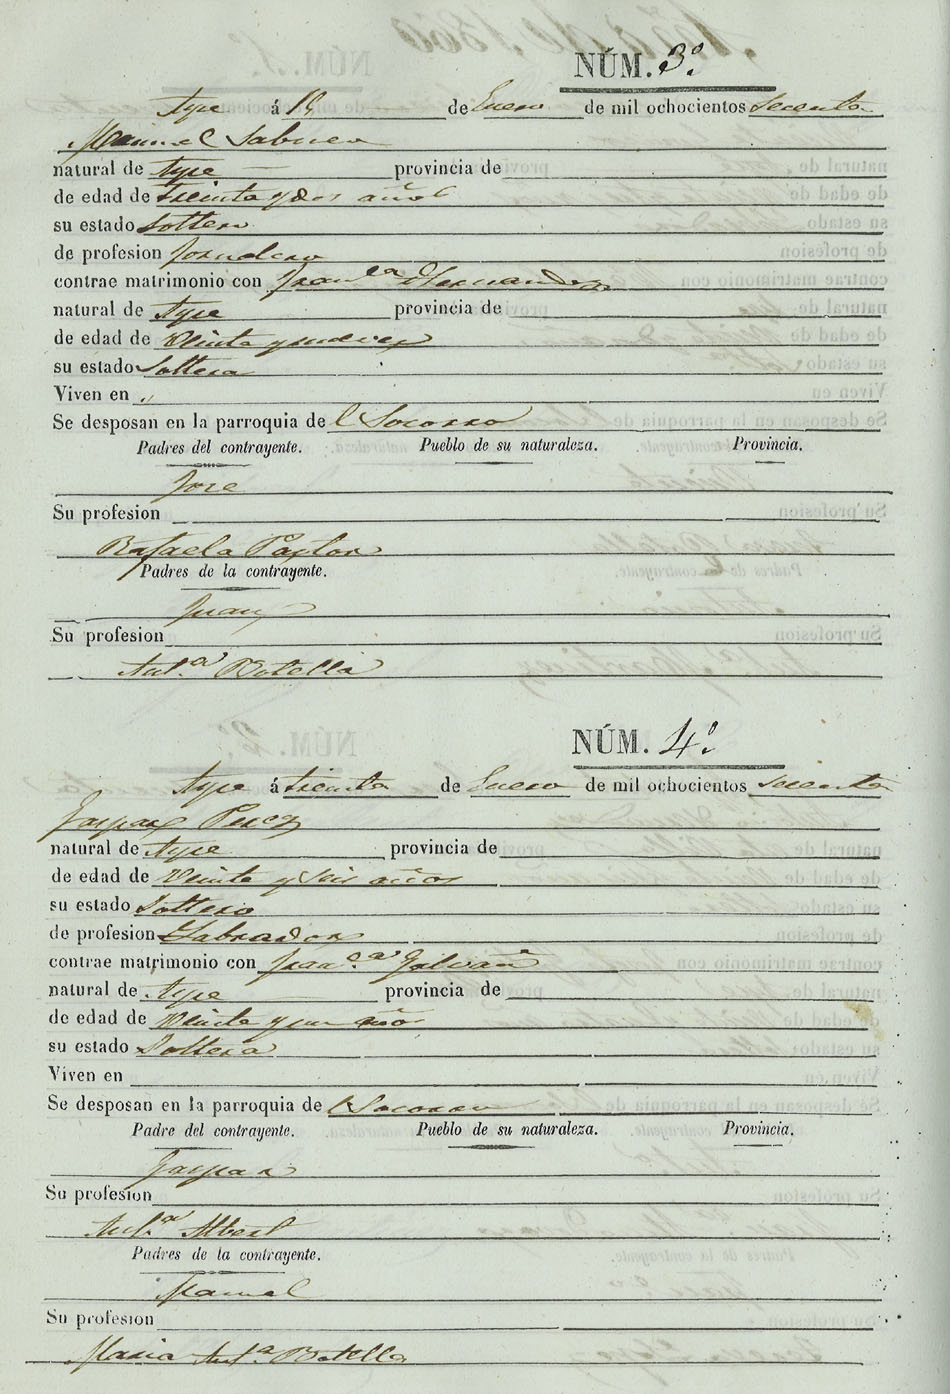 NÚM. 3º
Aspe á 19 de Enero de mil ochocientos secenta
Manuel Sabuco
natural de Aspe provincia de
de edad de treinta y dos años
su estado Soltero
de profesion Jornalero
contrae matrimonio con Fran.ca Hernandez
natural de Aspe provincia de
de edad de Veinte y nueve
su estado Soltera
Viven en
Se desposan en la parroquia de l Socorro
Padres del contrayente. Pueblo de su naturaleza. Provincia.
Jose
Su profesion
Rafaela Pastor
Padres de la contrayente.
Juan
Su profesion
Ant.a Botella
NÚM. 4º
Aspe á treinta de Enero de mil ochocientos secenta
Gaspar Perez
natural de Aspe provincia de
de edad de Veinte y seis años
su estado Soltero
de profesion Labrador
contrae matrimonio con Fran.ca Galvañ
natural de Aspe provincia de
de edad de Veinte y un años
su estado Soltera
Viven en
Se desposan en la parroquia de l Socorro
Padre del contrayente. Pueblo de su naturaleza. Provincia.
Gaspar
Su profesion
Ant.a Albert
Padres de la contrayente.
Manuel
Su profesion
Maria Ant.a Botella